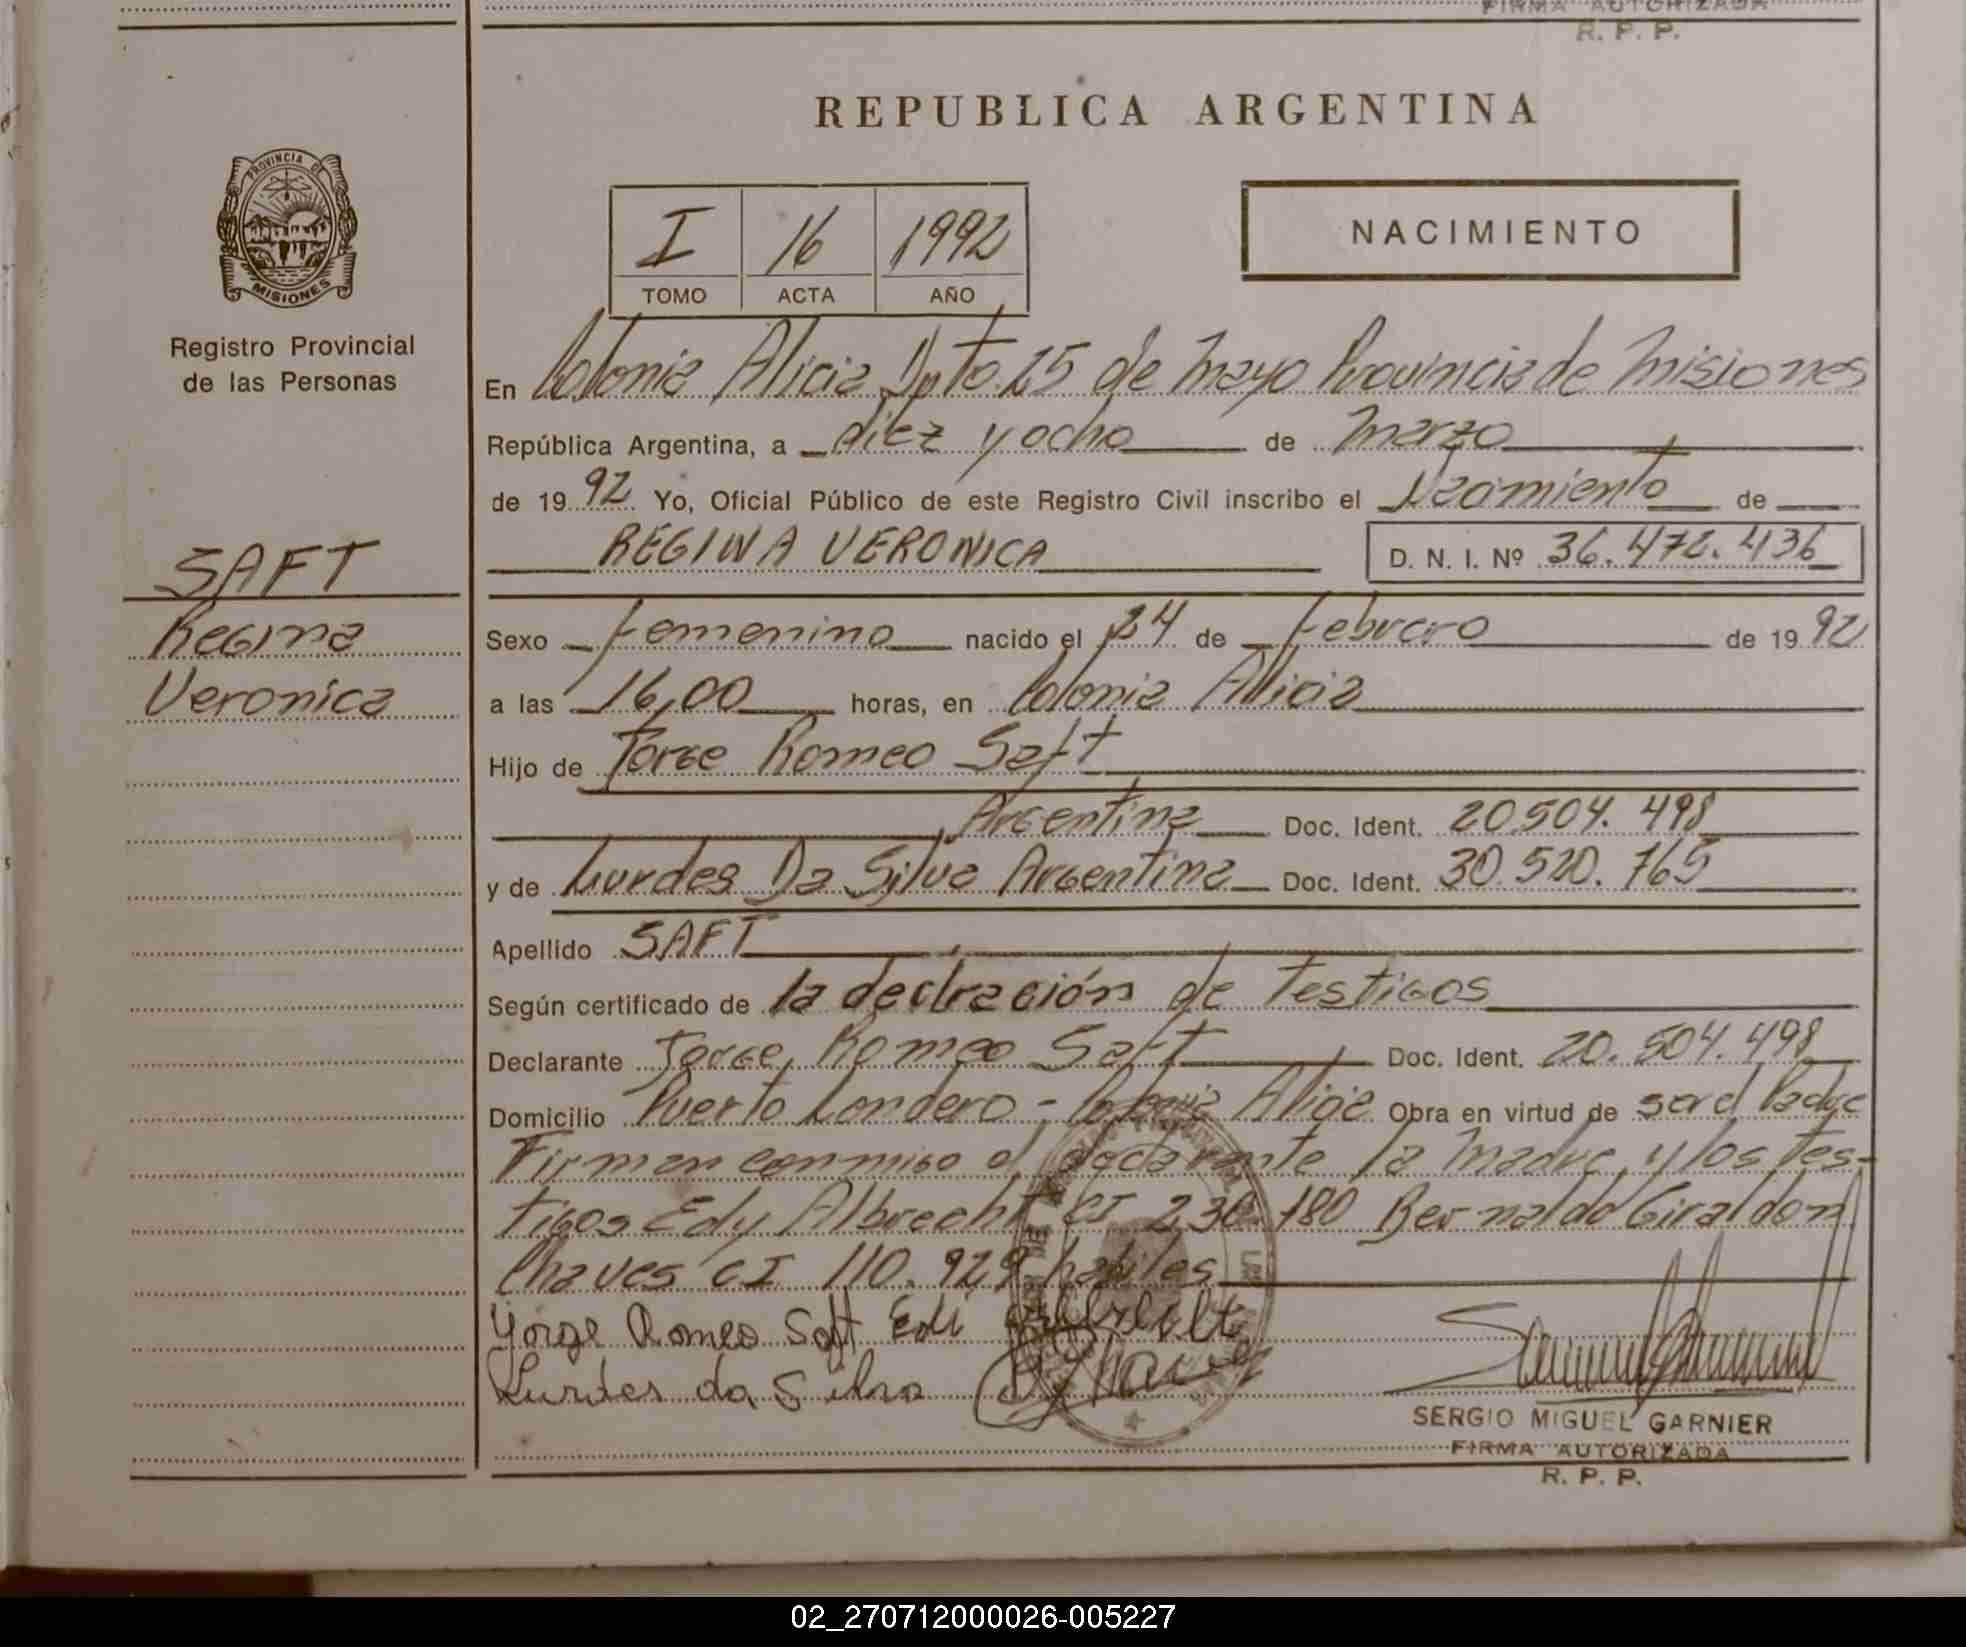 FIRMA AUTORIZADA
R. P. P.
REPUBLICA ARGENTINA
PROVINCIA DE
MISIONES
Registro Provincial
de las Personas
I 16 1992
TOMO ACTA AÑO
NACIMIENTO
SAFT
Regina
Veronica
En Colonia Alicia Dpto. 25 de Mayo Provincia de Misiones
República Argentina, a diez y ocho de Marzo
de 1992 Yo, Oficial Público de este Registro Civil inscribo el Nacimiento de
REGINA VERONICA D. N. I. Nº 36.472.436
Sexo femenino nacido el 24 de febrero de 1992
a las 16,00 horas, en Colonia Alicia
Hijo de Jorge Romeo Saft
Argentina Doc. Ident. 20.504.498
y de Lurdes Da Silva Argentina Doc. Ident. 30.520.765
Apellido SAFT
Según certificado de la declración de Testigos
Declarante Jorge Romeo Saft Doc. Ident. 20.504.498
Domicilio Puerto Londero - Colonia Alicia Obra en virtud de ser el Padre
Firman conmigo el declarante la madre y los Tes-
tigos Edy Albrecht CI 230.180 Bernaldo Giraldon
Chaves CI 110.929 habiles
Yorge Romeo Saft Edi
Lurdes da Silva
SERGIO MIGUEL GARNIER
FIRMA AUTORIZADA
R. P. P.
02_270712000026-005227